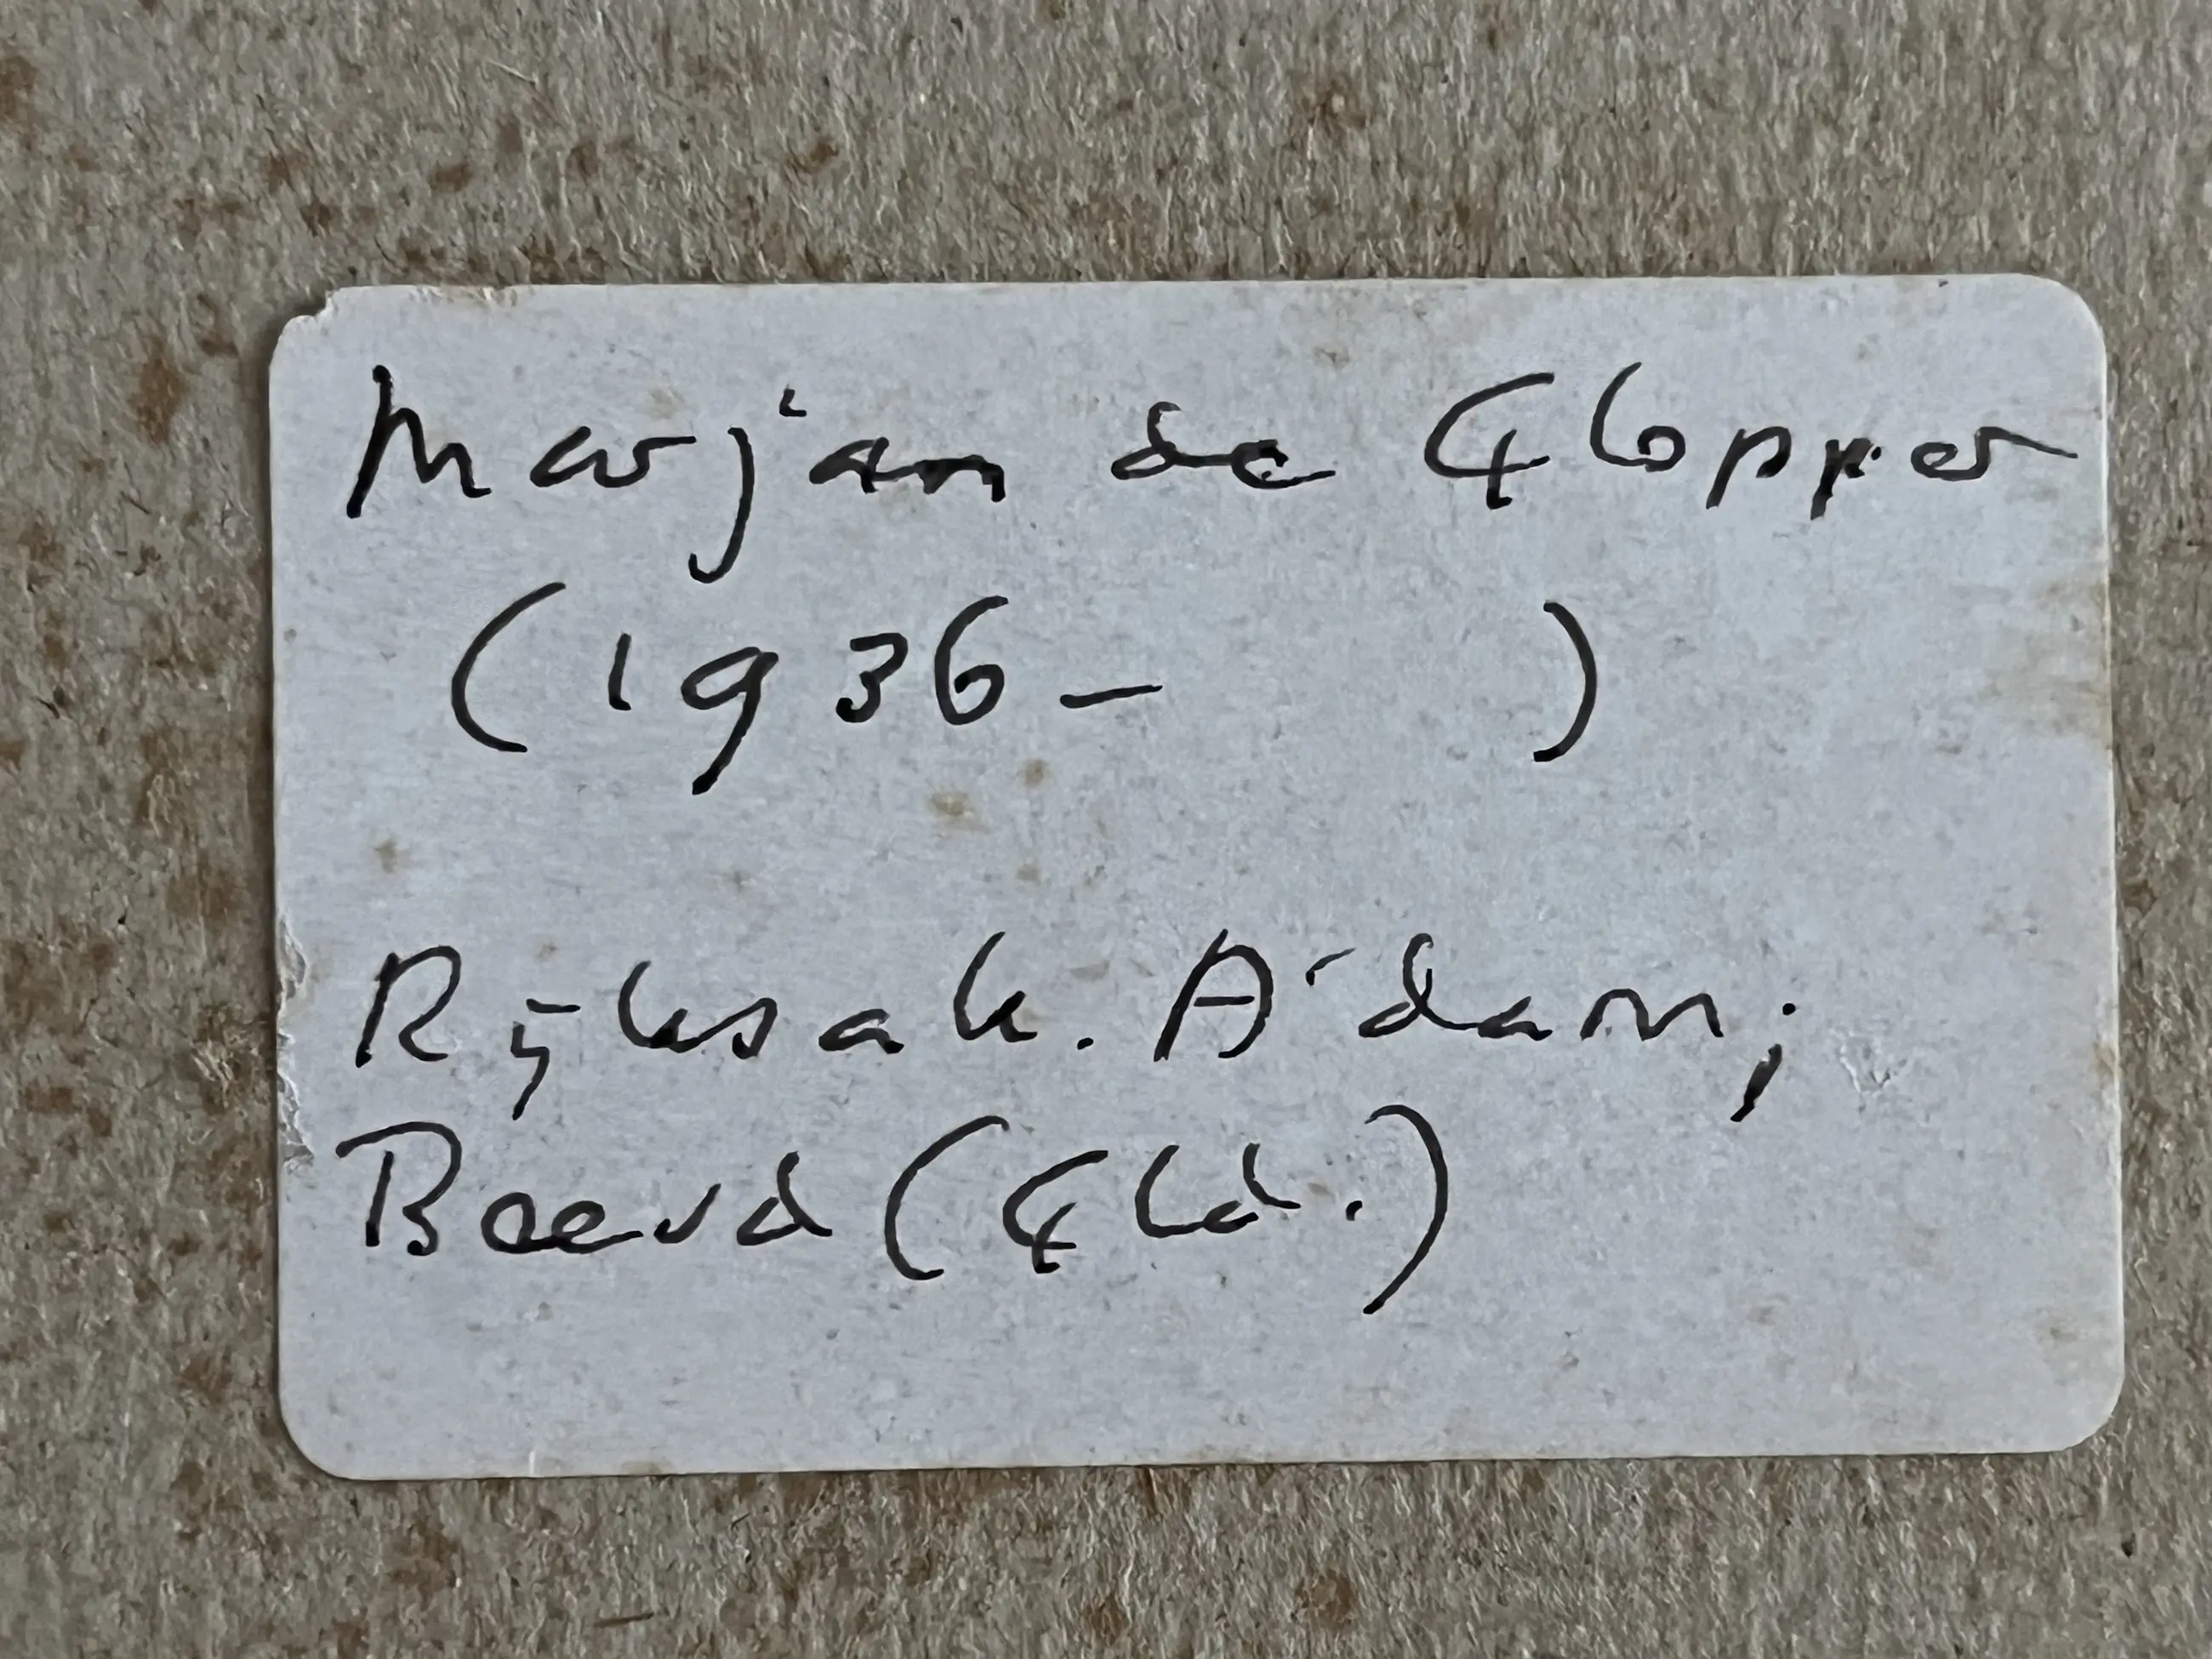 Marjan de Glopper
(1936 -      )
Rijksak. A'dam;
Beerd (Gld.)